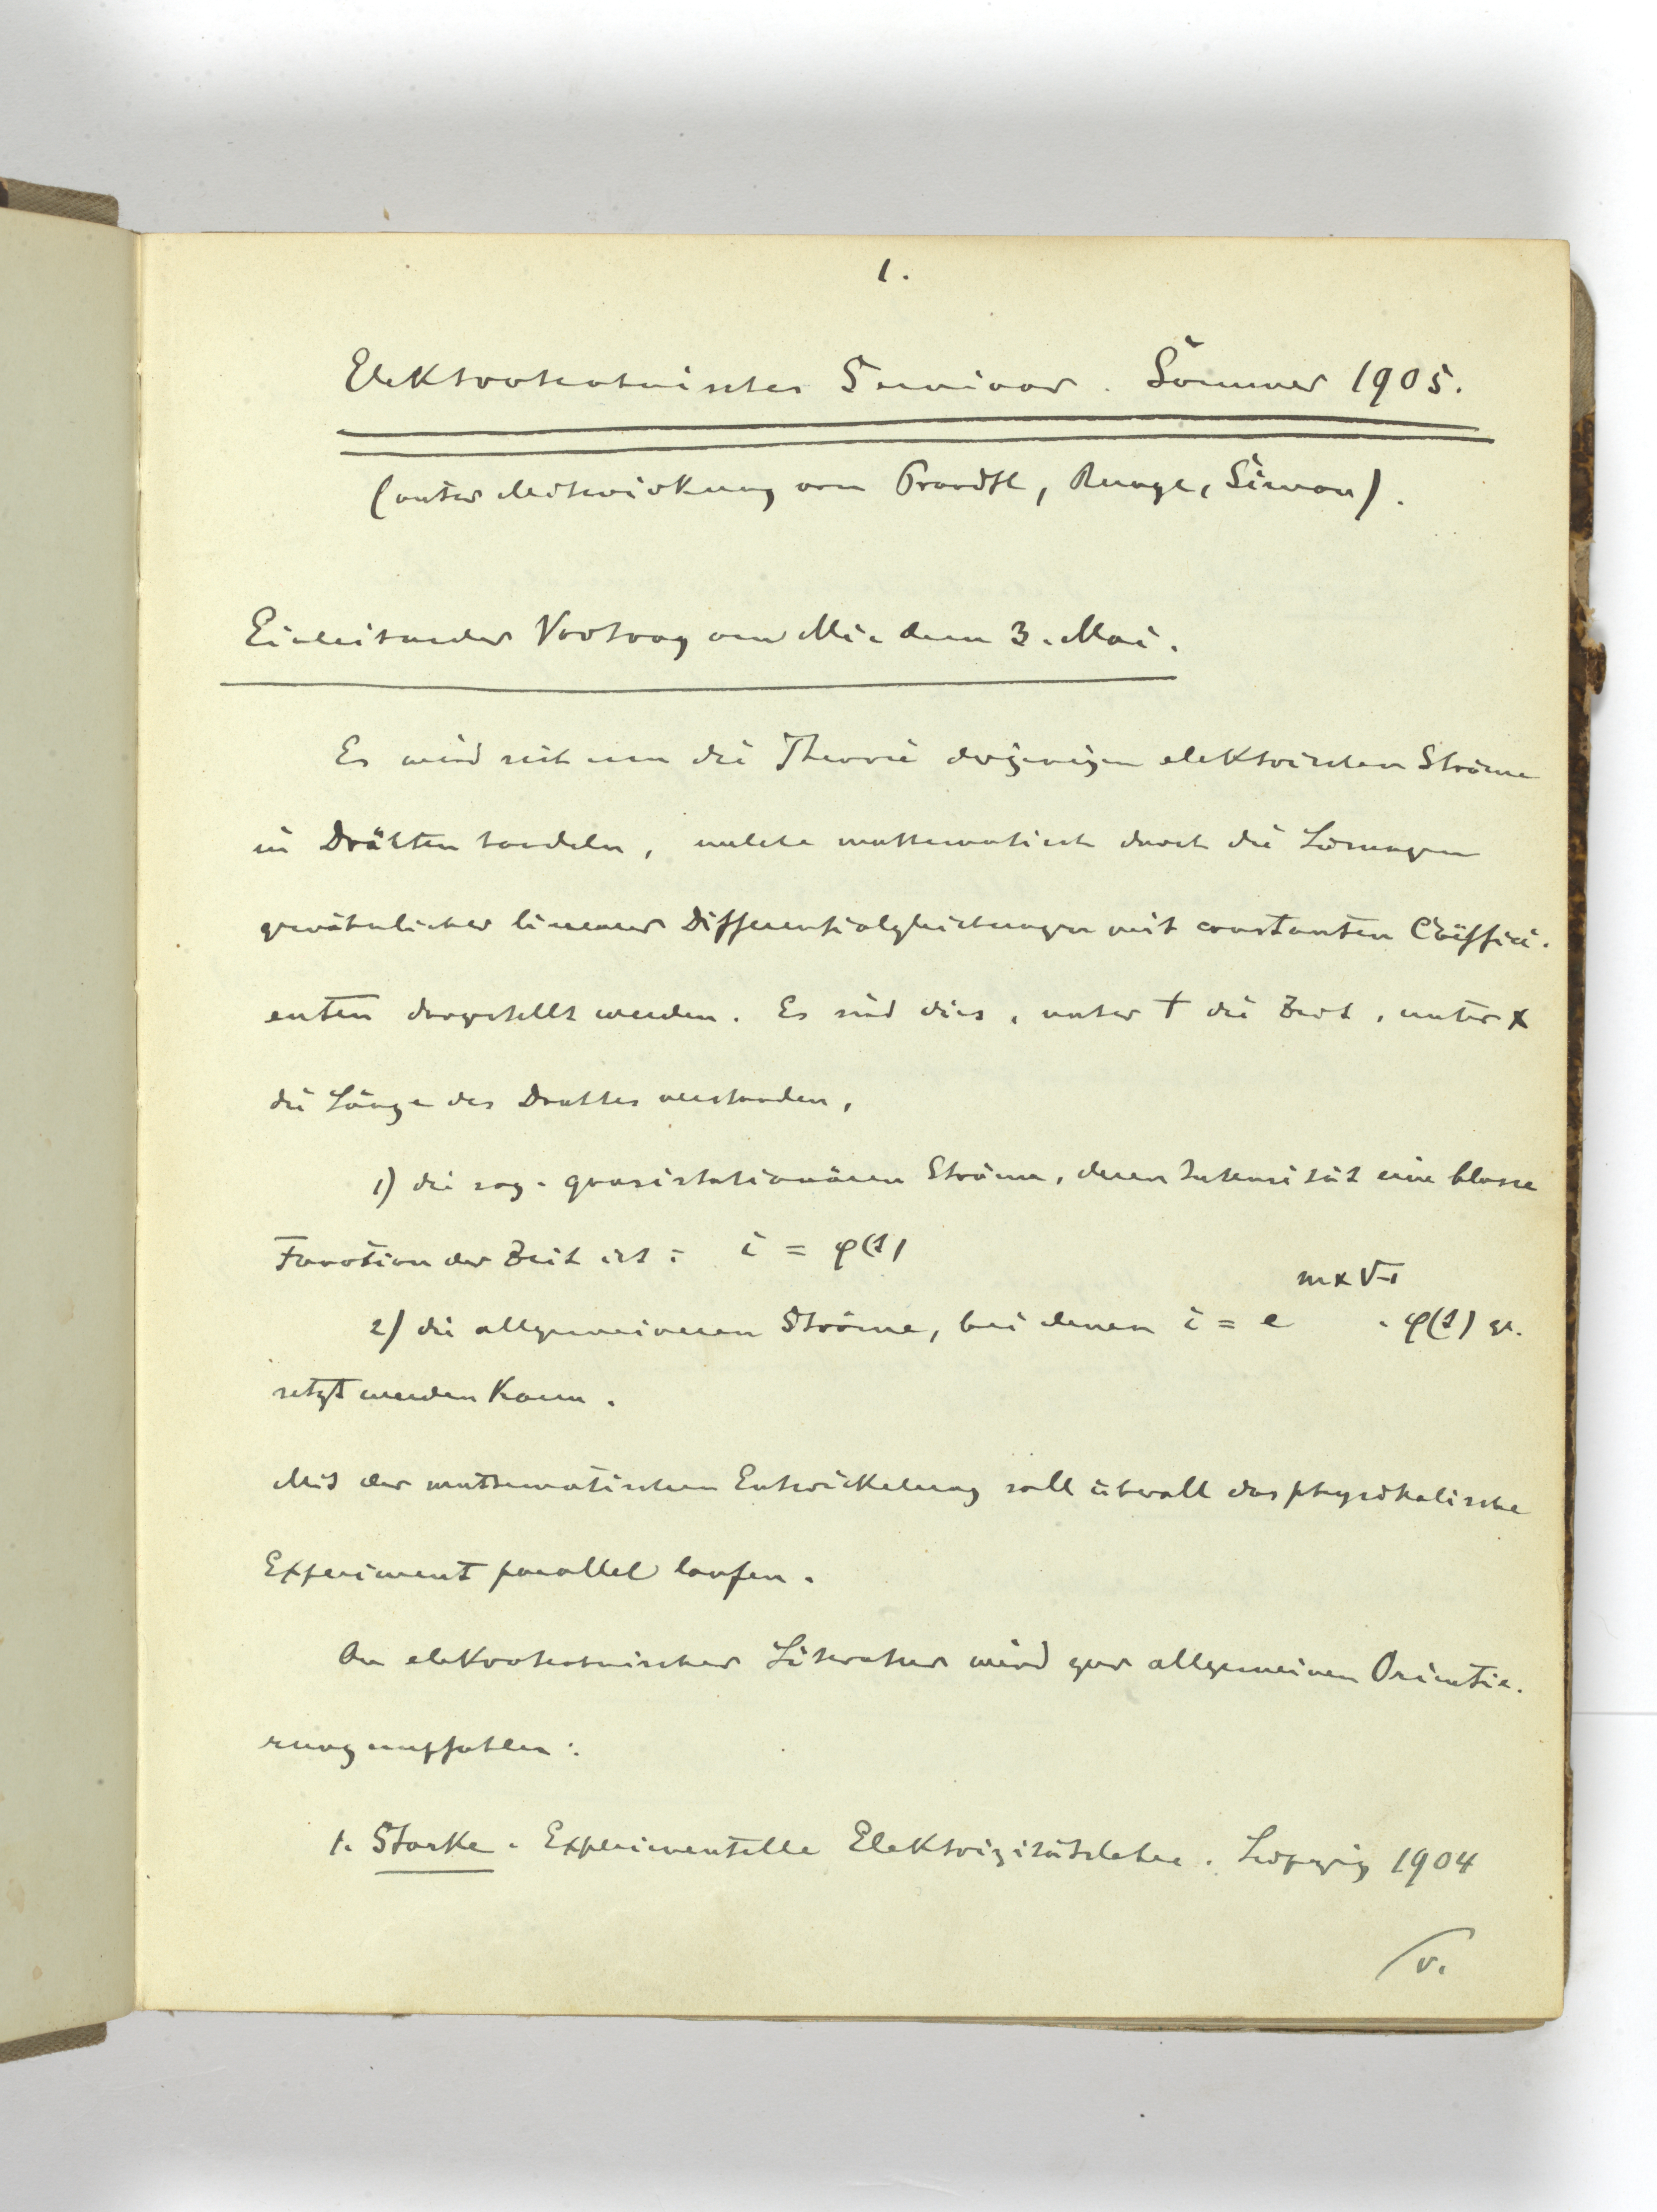 1.
Elektrotechnisches Seminar. Sommer 1905.
(unter Mitwirkung von Prandtl, Runge, Simon).
Einleitender Vortrag am Mi. dem 3. Mai.
Es wird sich um die Theorie derjenigen elektrischen Ströme
in Drähten handeln, welche mathematisch durch die Lösungen
gewöhnlicher linearer Differentialgleichungen mit constanten Coëffici-
enten dargestellt werden. Es sind dies, unter t die Zeit, unter x
die Länge des Drahtes verstanden,
1) die sog. quasistationären Ströme, deren Intensität eine blosse
Function der Zeit ist: i = φ(t)
2) die allgemeineren Ströme, bei denen i = e^{mx√-1} · φ(t) ge-
setzt werden kann.
Mit der mathematischen Entwickelung soll überall das physikalische
Experiment parallel laufen.
An elektrotechnischer Literatur wird zur allgemeinen Orientie-
rung empfohlen:
1. Starke. Experimentelle Elektrizitätslehre. Leipzig 1904
v.